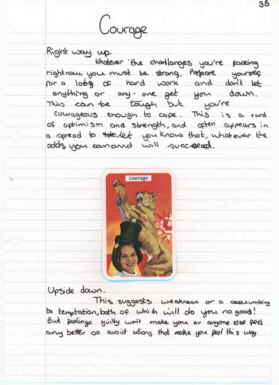 38
Courage
Right way up.
Whatever the challanges you're faceing
right now, you must be strong. Prepare yourself
for a lots of hard work and don't let
anything or any-one get you down.
This can be tough but you're
courageous enough to cope. This is a card
of optimism and strength, and often appears in
a spread to let you know that, whatever the
odds you can and will succeed.
Courage
Upside down.
This suggests weakness or a succumbing
to temptation, both of which will do you no good!
But feelings guilty won't make you or anyone else feel
any better so avoid things that make you feel this way.